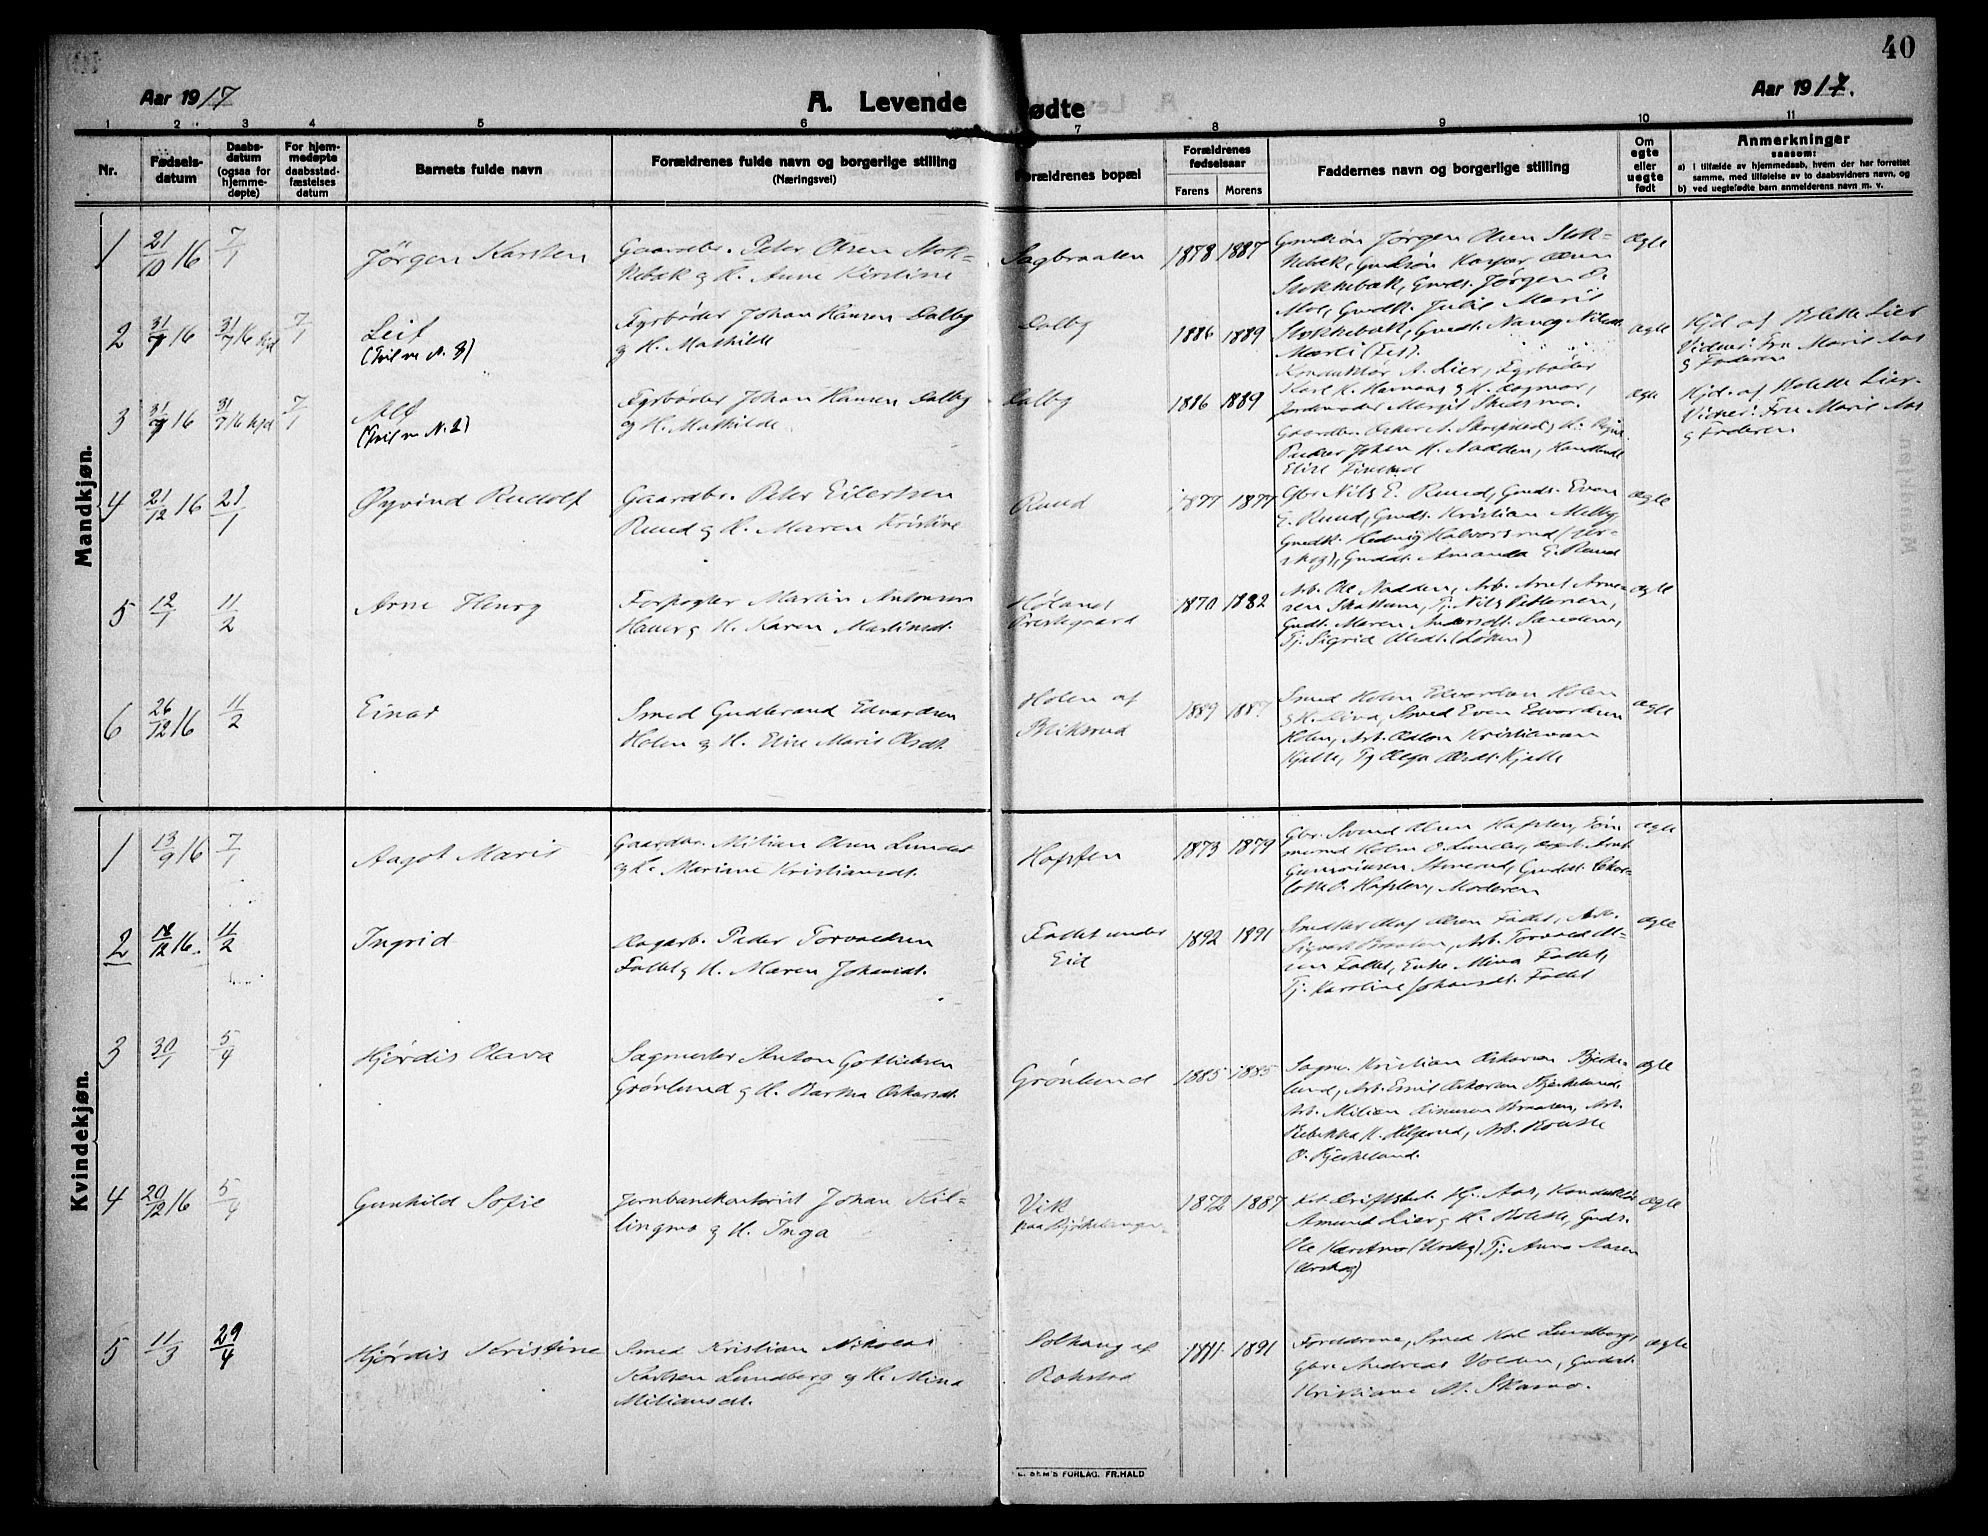 40
Aar 1917
A. Levende
ødte
Aar 1917.
1 2 3 4 5 6 7 8 9 10 11
Nr.
Fødsels-
datum
Daabs-
datum
(ogsaa for
hjemme-
døpte)
For hjem-
medøpte
daabsstad-
fæstelses
datum
Barnets fulde navn
Forældrenes fulde navn og borgerlige stilling
(Næringsvei)
Forældrenes bopæl
Forældrenes
fødselsaar
Farens Morens
Faddernes navn og borgerlige stilling
Om
egte
eller
uegte
født
Anmerkninger
saasom:
a) i tilfælde av hjemmedaab, hvem der har forrettet
samme, med tilføielse av to daabsvidners navn, og
b) ved uegtefødte barn anmelderens navn m. v.
Mandkjøn.
1 21/10 16 7/1 Jörgen Karsten
Gaardbr. Peter Olsen Stok-
kebæk & H. Anne Kirstine
Sagbraaten 1878 1887
Gmdsøn Jørgen Olsen Stok-
kebæk, Gmdsøn Kaspar Olsen
Stokkebæk, Gmds. Jørgen O.
Moe, Gmdk. Julie Marie
Stokkebæk, Gmdt. Nancy
ægte
2 31/7 16 31/7 16 hjd 7/1 Leif
(Tvil m N. 3)
Fyrbøder Johan Hansen Dalby
og H. Mathilde
Dalby 1886 1889
Konduktør A. Lier, Fyrbøder
Karl K. & H. Dagmar,
Jordmoder Margit
ægte
Hjd af Bolette Lier
Vidner: Fru Marie Aas
& Faderen
3 31/7 16 31/7 16 hjd 7/1 Alf
(Tvil m N. 2)
Fyrbøder Johan Hansen Dalby
og H. Mathilde
Dalby 1886 1889
Gaardbr.
Johan H. Nadden, Handlende
Elise Finstad
ægte
Hjd. af Bolette Lier.
Vidner: Fru Marie Aas
& Faderen
4 21/12 16 21/1 Øyvind Rudolf
Gaardbr. Peter Eilertsen
Ruud & H. Maren Kristine
Ruud 1877 1877
Gbr Nils E. Ruud, Gmds. Even
E. Ruud, Gmds. Kristian Melby,
Gmdk. Hedvig Halvorsrud (Ur-
skog), Gmddt. Amanda E. Ruud
ægte
5 12/1 11/2 Arne Henry
Forpagter Martin Antonsen
Hauer & H. Karen Martinsdt.
Hølands
Prestegaard 1870 1882
Arb. Ole Nadden, Arb. Arnt Arne-
sen Skattum, Tj. Nils Pettersen,
Gmdt. Maren Andersdt.
Tj. Sigrid Olsdt. (Løken)
ægte
6 26/12 16 11/2 Einar
Smed Gudbrand Edvardsen
Holen & H. Elise Marie Olsdt.
Holen af
Bliksrud 1889 1887
Smed Edvardsen Holen
& H. Lina, Smed Even Edvardsen
Holen, Arb. Kristiansen
Kjelle, Tj Olga Olsdt. Kjelle
ægte
Kvindekjøn.
1 13/9 16 7/1 Aagot Marie
Gaardbr. Milian Olsen Lunder
& H. Mariane Kristiansdt.
Haften 1873 1879
Gbr. Svend Olsen Haften,
O. Lunder,
Gunnersen Stenerud, Gmddt. Char-
lotte O. Haften, Moderen
ægte
2 18/12 16. 11/2 Ingrid
Dagarb. Peder Torvaldsen
Fallet & H. Maren Johansdt.
Fallet under
Eid 1892 1891
Olaf Olsen Fallet, Arb.
Sigvart Braaten, Arb. Torvald M-
sen Fallet, Enke Mina Fallet,
Tj. Karoline Johansdt. Fallet
ægte
3 30/1 5/4 Hjørdis Olava
Sagmester Anton Gottliebsen
Grønlund & H. Bertha Oskarsdt.
Grønlund 1885 1885
Sagm. Kristian Oskarsen Bjerke-
lund, Arb. Emil Oskarsen Bjerkelund,
Arb. Milian Simensen Braaten, Arb.
Rebekka H. Helgerud, Arb.
O. Bjerkelund.
ægte
4 20/12 16 5/4 Gunhild Sofie
Jernbanekontorist Johan Kil-
lingmo & H. Inga
Vik
paa Bjørkelangen 1872 1887
Kst. Driftsbest. Hj. Aas, Konduktør
Amund Lier & H. Bolette, Gmds.
Ole (Urskog) Tj. Anna
(Urskog)
ægte
5 11/3 29/4 Hjørdis Kristine
Smed Kristian Nikolai
Karlsen Lundberg & H. Mina
Miliansdt.
Solhaug af
Rakstad 1891
Forældrene, Smed Karl Lundberg,
Gbr. Andreas Volden, Gmdst.
Kristiane M. Skarnæs.
ægte
E. SEM'S FORLAG. FR.HALD